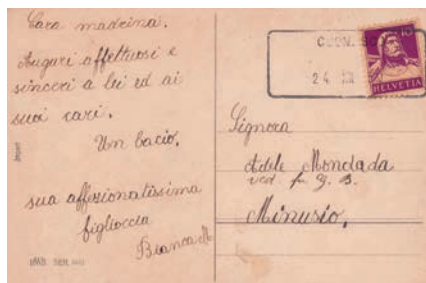 Cara madrina.
Auguri affettuosi e
sinceri a lei ed ai
suoi cari.
Un bacio,
sua affezionatissima
figlioccia
Bianca M
Signora
Adele Mondada
ved. fu G. B.
Minusio.
10
HELVETIA
24